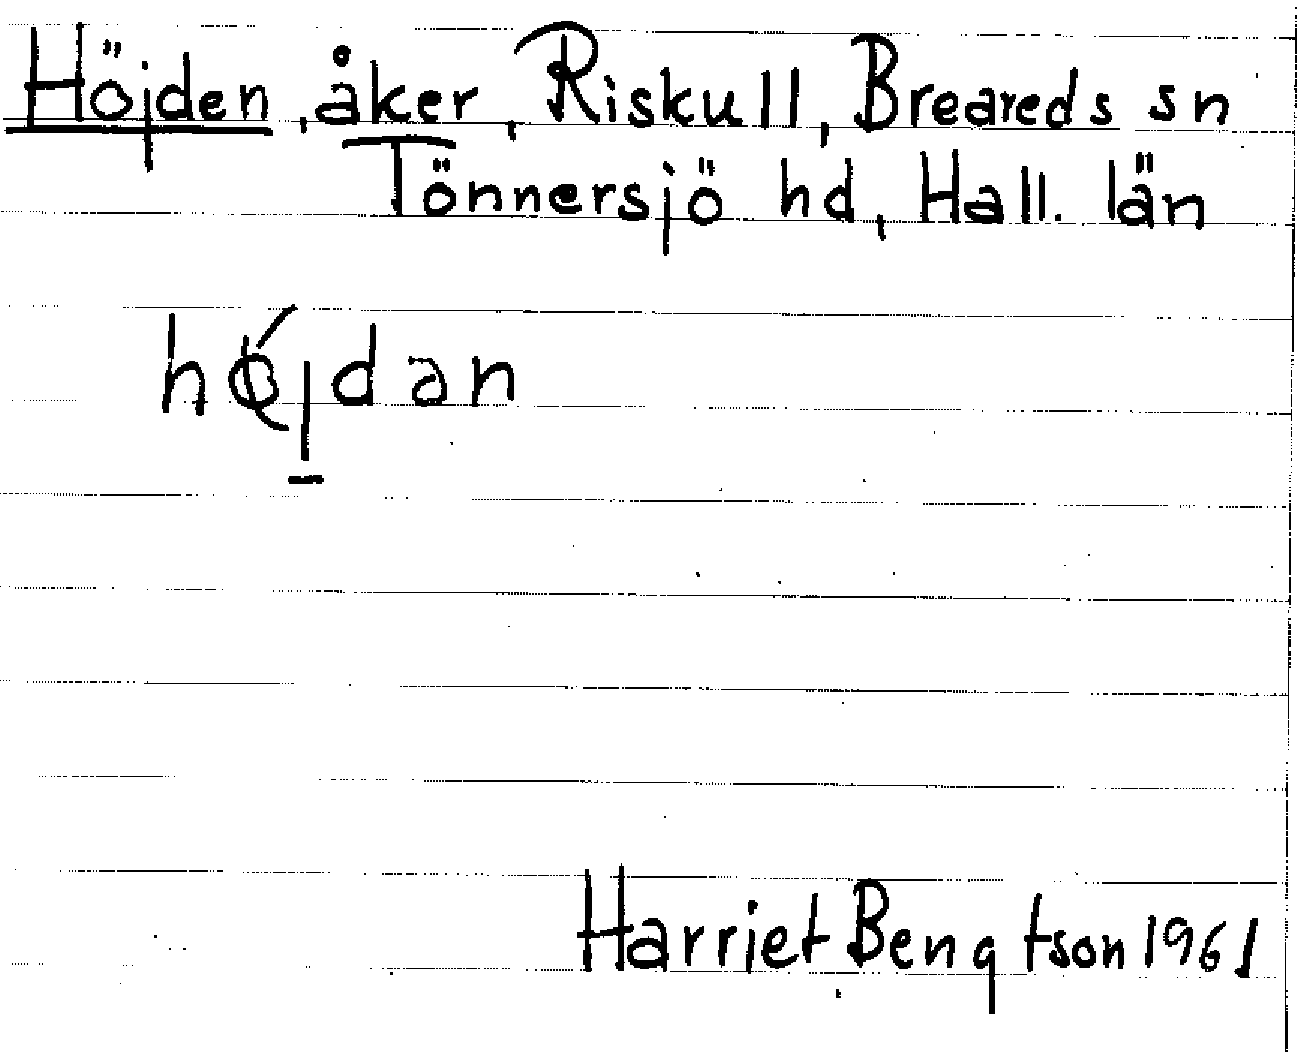 Höjden, åker, Riskull, Breareds sn
Tönnersjö hd, Hall. län
Harriet Bengtson 1961